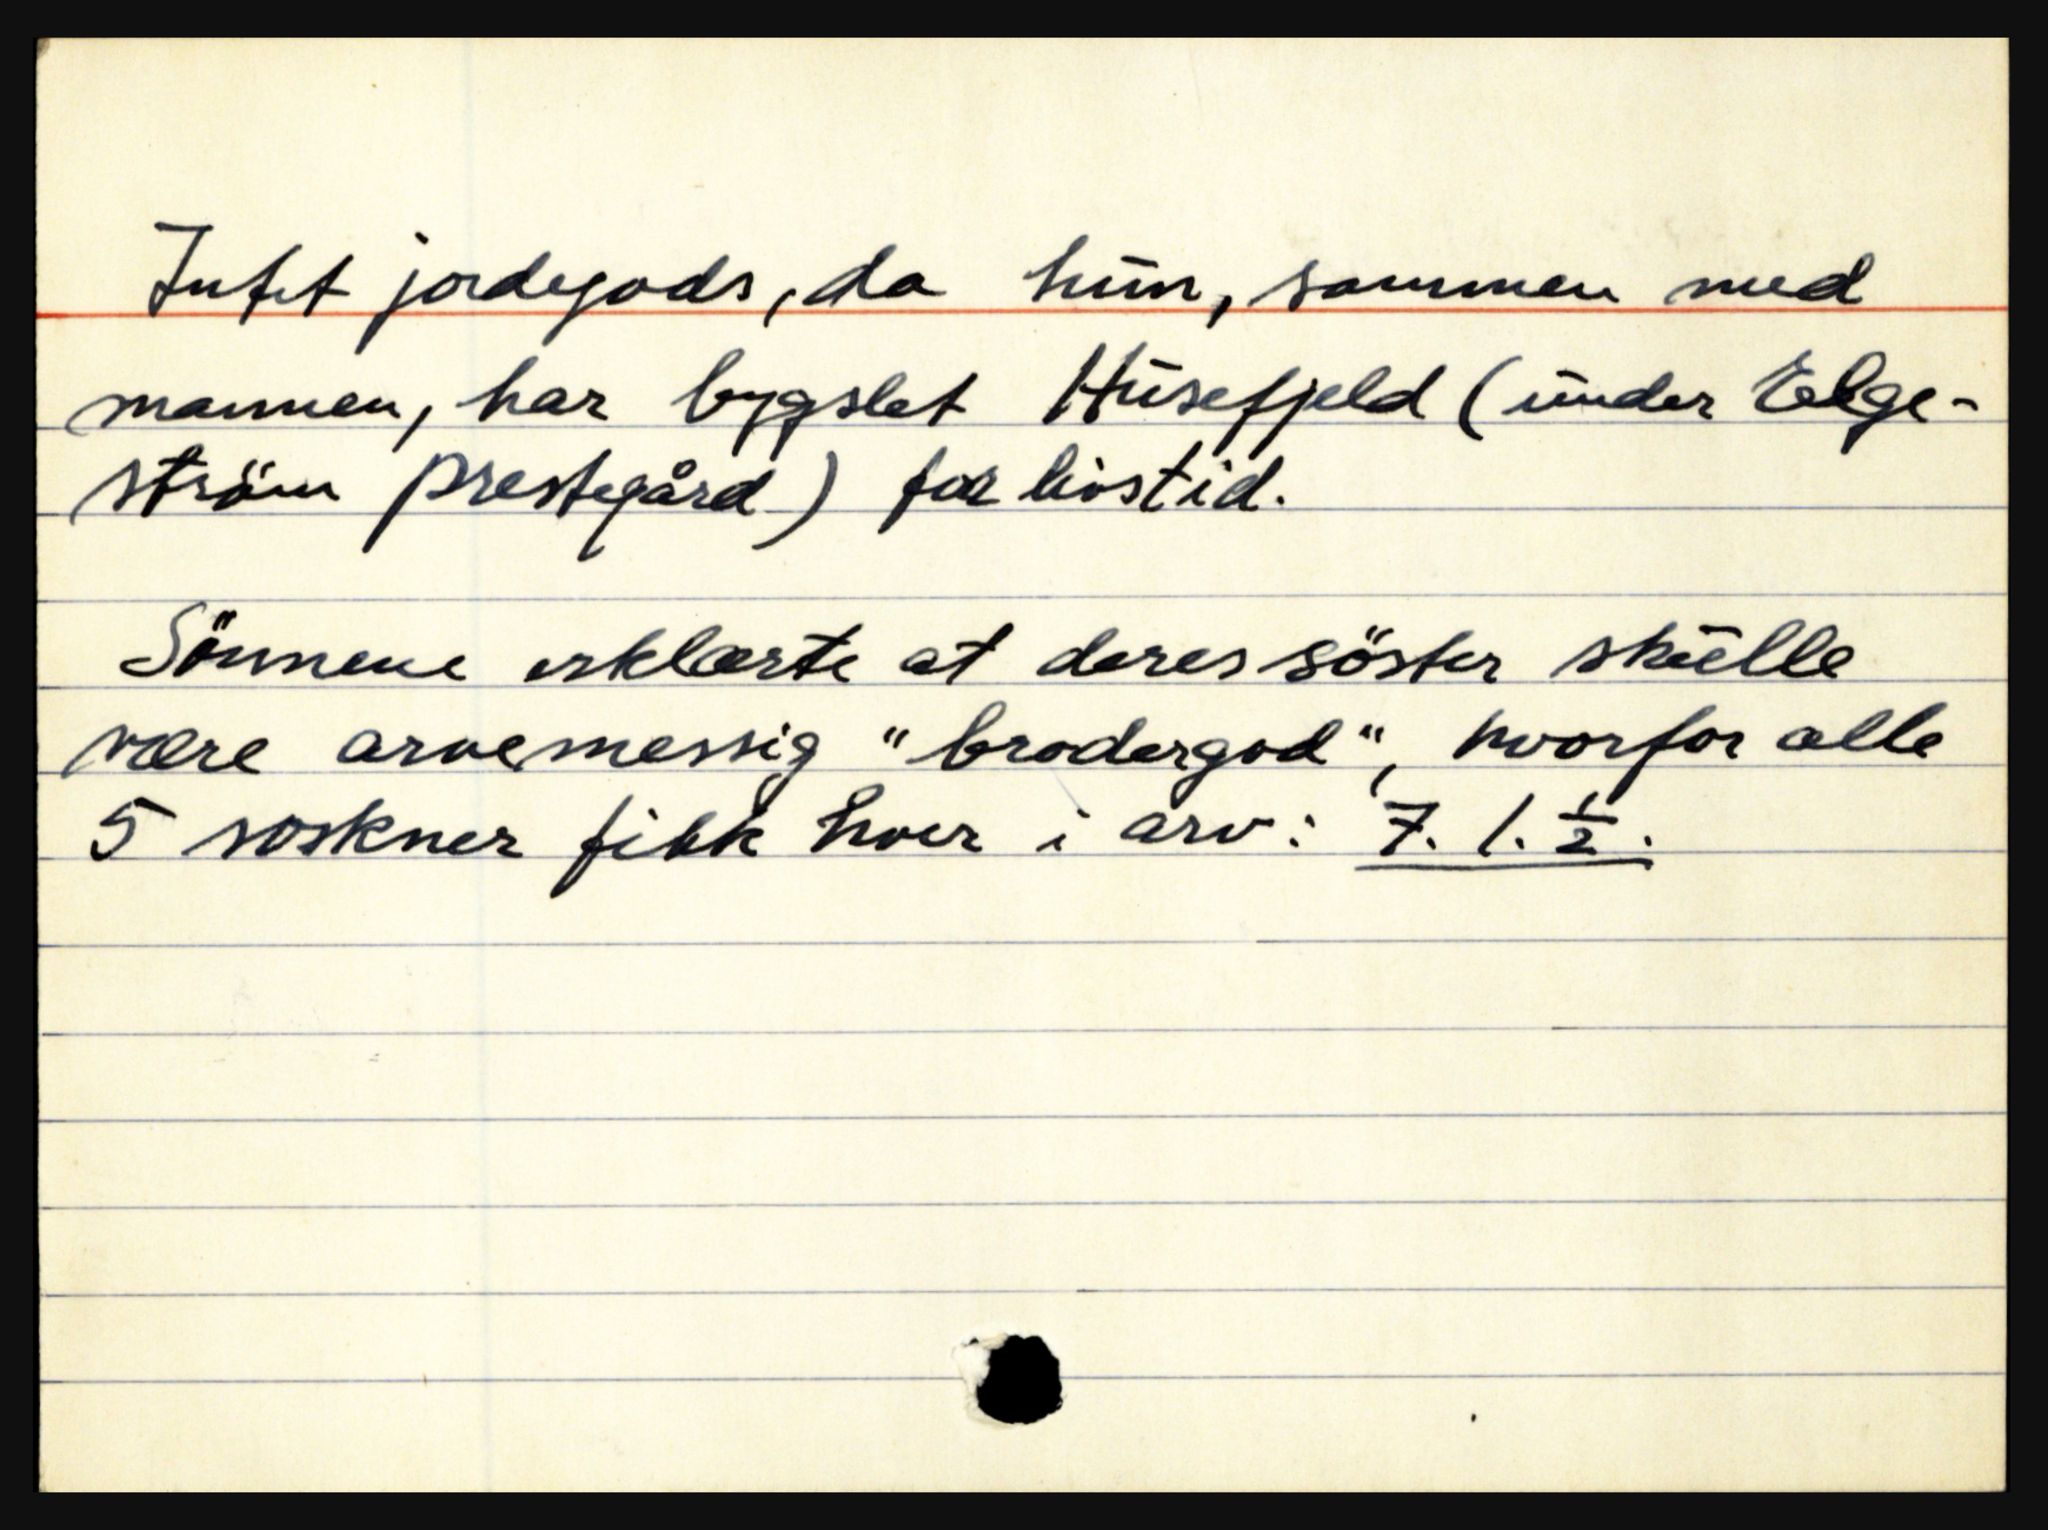 Intet jordegods, da hun, sammen med
mannen, har bygslet Husefjeld (under Eelge-
ström prestegård) for livstid.
Sönnene erklærte at deres söster skulle
være arvemessig "brodergod", hvorfor alle
5 søskner fikk hver i arv: 7. 1. 1/2.